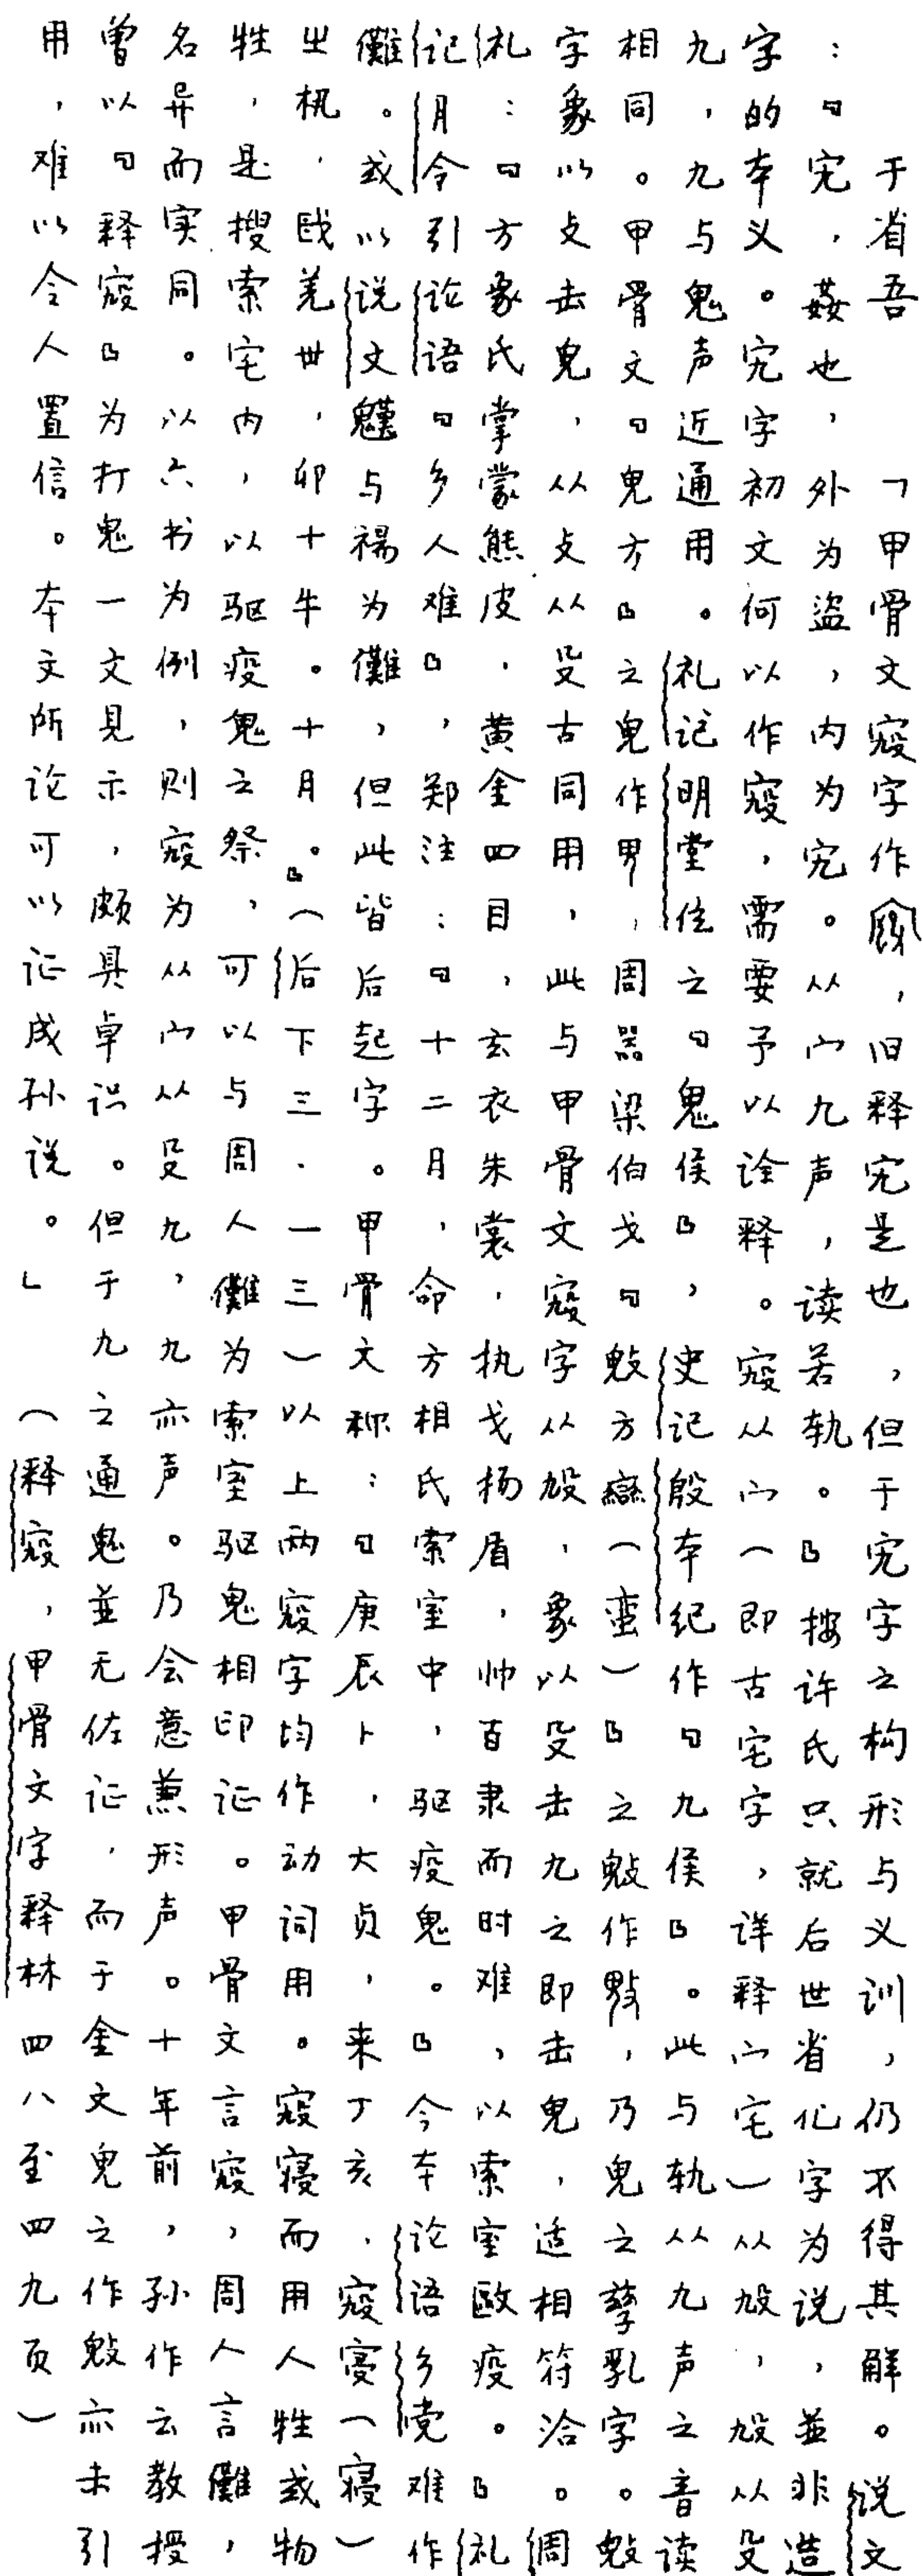 于省吾　「甲骨文字作，旧释宄是也，但于宄字之构形与义训，仍不得其解。说文
：『宄，姦也，外为盗，内为宄。从宀九声，读若轨。』按许氏只就后世省化字为说，並非造
字的本义。宄字初文何以作，需要予以诠释。从宀（即古宅字，详释宀宅）从，从殳
九，九与鬼声近通用。礼记明堂位之『鬼侯』，史记殷本纪作『九侯』。此与轨从九声之音读
相同。甲骨文『鬼方』之鬼作，周器梁伯戈『方䜌（蛮）』之作，乃鬼之孳乳字。
字象以攴击鬼，从攴从殳古同用，此与甲骨文字从，象以殳击九之即击鬼，适相符洽。周
礼：『方象氏掌蒙熊皮，黄金四目，玄衣朱裳，执戈扬盾，帅百隶而时难，以索室敺疫。』礼
记月令引论语『乡人难』，郑注：『十二月，命方相氏索室中，驱疫鬼。』今本论语乡党难作
儺。或以说文与禓为儺，但此皆后起字。甲骨文称：『庚辰卜，大贞，来丁亥，（寝）
㞢杌，戠羌卅，卯十牛。十月。』（后下三·一三）以上两字均作动词用。寝而用人牲或物
牲，是搜索宅内，以驱疫鬼之祭，可以与周人儺为索室驱鬼相印证。甲骨文言，周人言儺，
名异而实同。以六书为例，则为从宀从殳九，九亦声。乃会意兼形声。十年前，孙作云教授
曾以『释』为打鬼一文见示，颇具卓识。但于九之通鬼並无佐证，而于金文鬼之作亦未引
用，难以令人置信。本文所论可以证成孙说。」（释，甲骨文字释林四八至四九页）